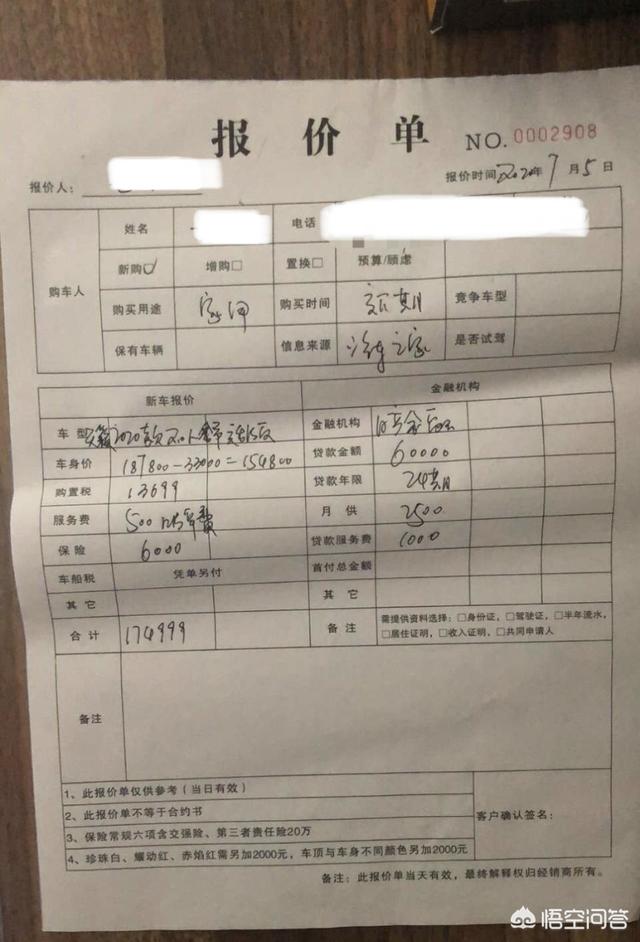 报价单 NO.0002908
报价人： 报价时间2020年7月5日
购车人
姓名 电话
新购☑ 增购□ 置换□ 预算/顾虑
购买用途 家用 购买时间 竞争车型
保有车辆 信息来源 汽车之家 是否试驾
新车报价 金融机构
车型 天籁2020款2.0L 金融机构
车身价 187800-33000=154800 贷款金额 60000
购置税 13699 贷款年限 24期
服务费 500 月供 2500
保险 6000 贷款服务费 1000
车船税 凭单另付 首付总金额
其它 其它
合计 174999 备注 需提供资料选择：□身份证，□驾驶证，□半年流水，
□居住证明，□收入证明，□共同申请人
备注
1、此报价单仅供参考（当日有效）
2、此报价单不等于合约书
3、保险常规六项含交强险、第三者责任险20万
4、珍珠白、耀动红、赤焰红需另加2000元，车顶与车身不同颜色另加2000元
客户确认签名：
备注：此报价单当天有效，最终解释权归经销商所有。
悟空问答